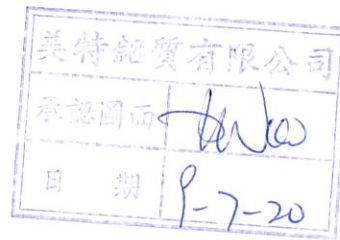 美特鋁質有限公司
承認圖面
日 期 9-7-20